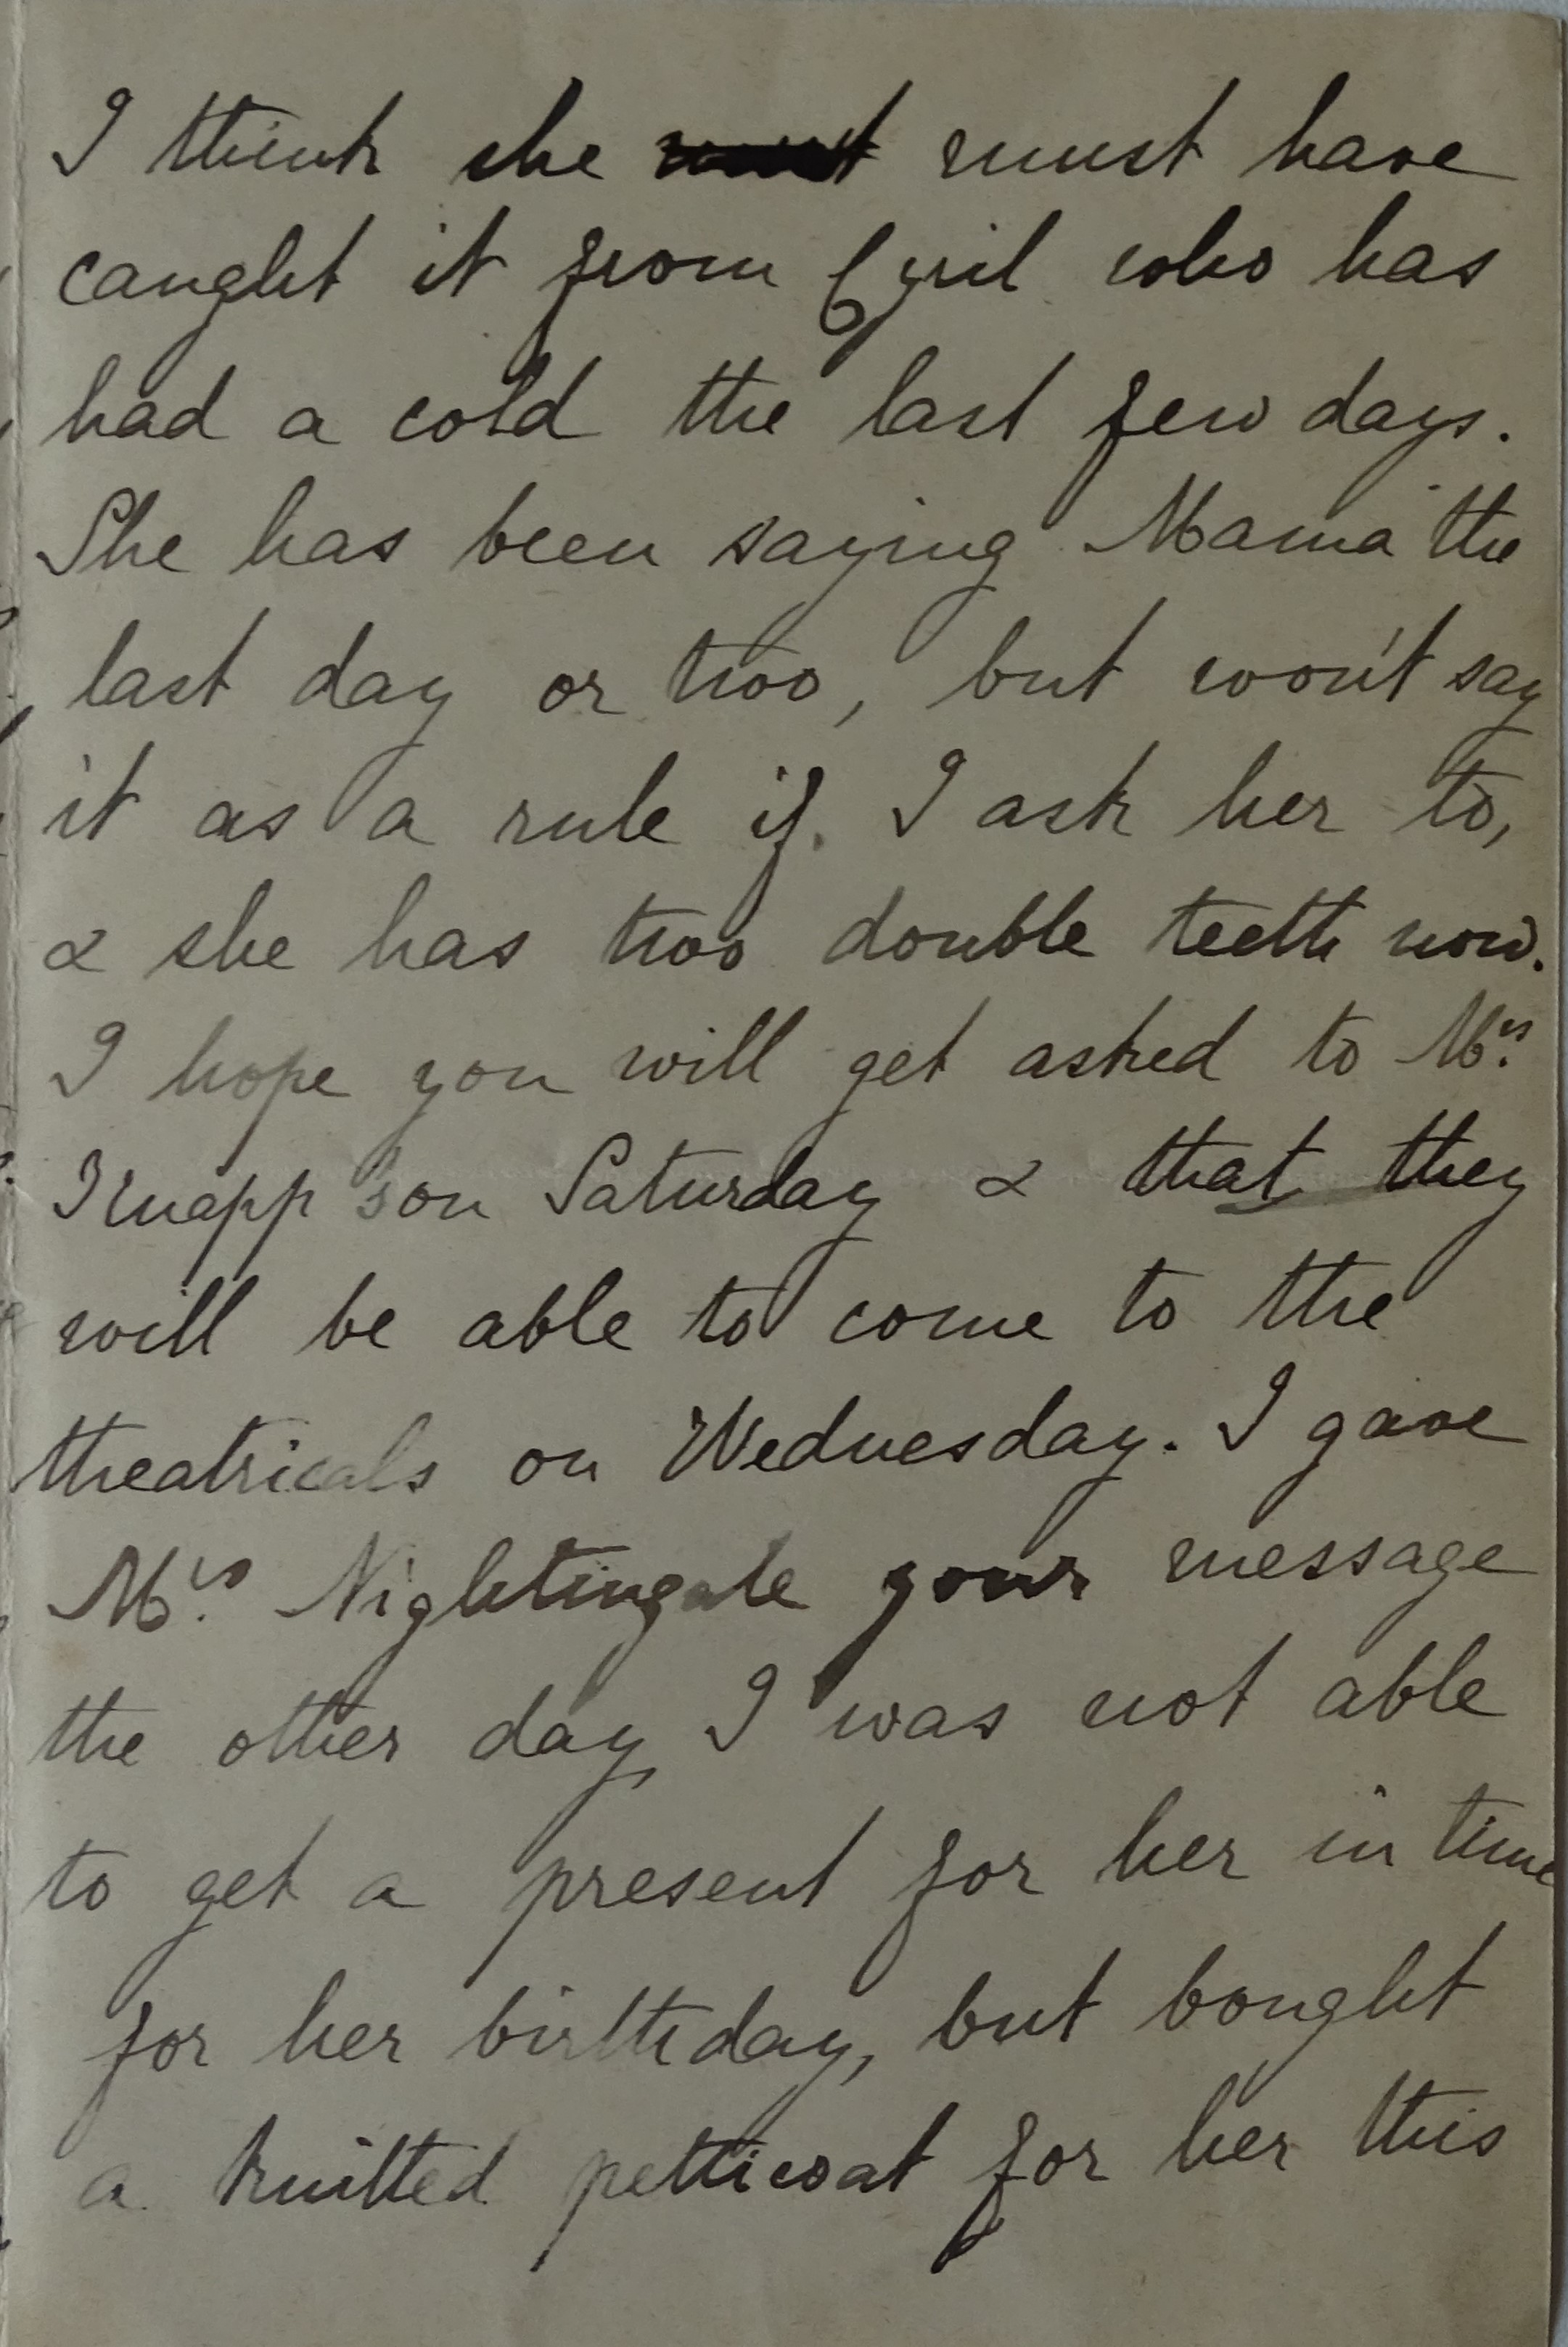 I think she must must have
caught it from Cyril who has
had a cold the last few days.
She has been saying Mama the
last day or two, but won't say
it as a rule if I ask her to,
& she has two double teeth now.
I hope you will get asked to Mrs.
Knapp's on Saturday & that they
will be able to come to the
theatricals on Wednesday. I gave
Mrs. Nightingale your message
the other day, I was not able
to get a present for her in time
for her birthday, but bought
a knitted petticoat for her this